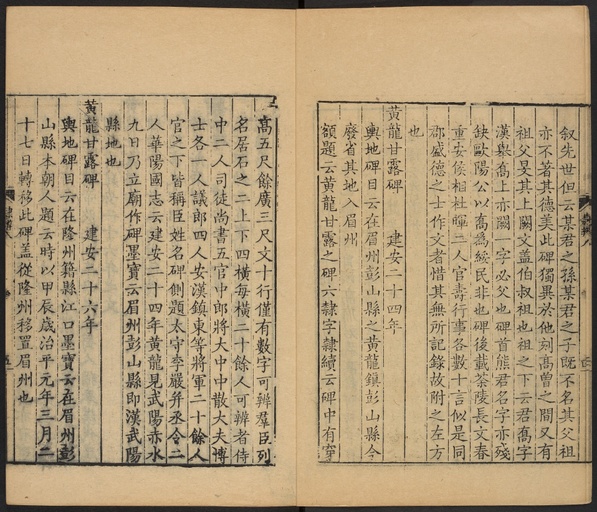 叙先世但云某君之孫某君之子既不名其父祖
亦不著其德美此碑獨異於他刻高曾之間又有
祖父旻其上闕文蓋伯叔祖也祖之下云君喬字
漢舉喬上亦闕一字必父也碑首熊君名字亦殘
缺歐陽公以喬為綏民非也碑後載荼陵長文春
重安侯相杜暉二人官壽行事各數十言似是同
郡盛德之士作文者惜其無所記錄故附之左方
也
黃龍甘露碑 建安二十四年
輿地碑目云在眉州彭山縣之黃龍鎮彭山縣今
廢省其地入眉州
額題云黃龍甘露之碑六隷字隷續云碑中有穿
高五尺餘廣三尺文十行僅有數字可辨羣臣列
名居石之二上下四橫每橫二十餘人可辨者侍
中二人司徒尚書五官中郎將大中中散大夫博
士各一人議郎四人安漢鎮東等將軍二十餘人
官之下皆稱臣姓名碑側題太守李嚴并丞令二
人華陽國志云建安二十四年黃龍見武陽赤水
九日乃立廟作碑墨寶云眉州彭山縣即漢武陽
縣地也
黃龍甘露碑 建安二十六年
輿地碑目云在隆州籍縣江口墨寶云在眉州彭
山縣本朝人題云時以甲辰歲治平元年三月二
十七日轉移此碑蓋從隆州移置眉州也